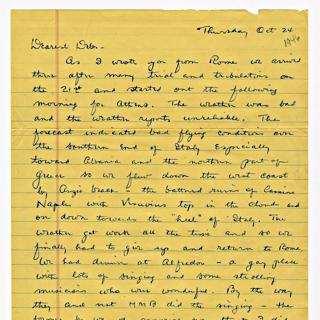 Thursday Oct 24
1946
Dearest Debs-
As I wrote you from Rome we arrived
there after many trial and tribulations on
the 21st and started out the following
morning for Athens. The weather was bad
and the weather reports unreliable. The
forecast indicated bad flying conditions over
the Southern End of Italy Especially
toward Albania and the northern part of
Greece so we flew down the west coast
by Anzio beach - the battered ruins of Cassino
Naples with Vesuvius top in the clouds and
on down towards the "heel" of Italy. The
weather got worse all the time and so we
finally had to give up and return to Rome.
We had dinner at Alfredos - a gay place
with lots of singing and some strolling
musicians who were wonderful. By the way
they and not HMB did the singing - the